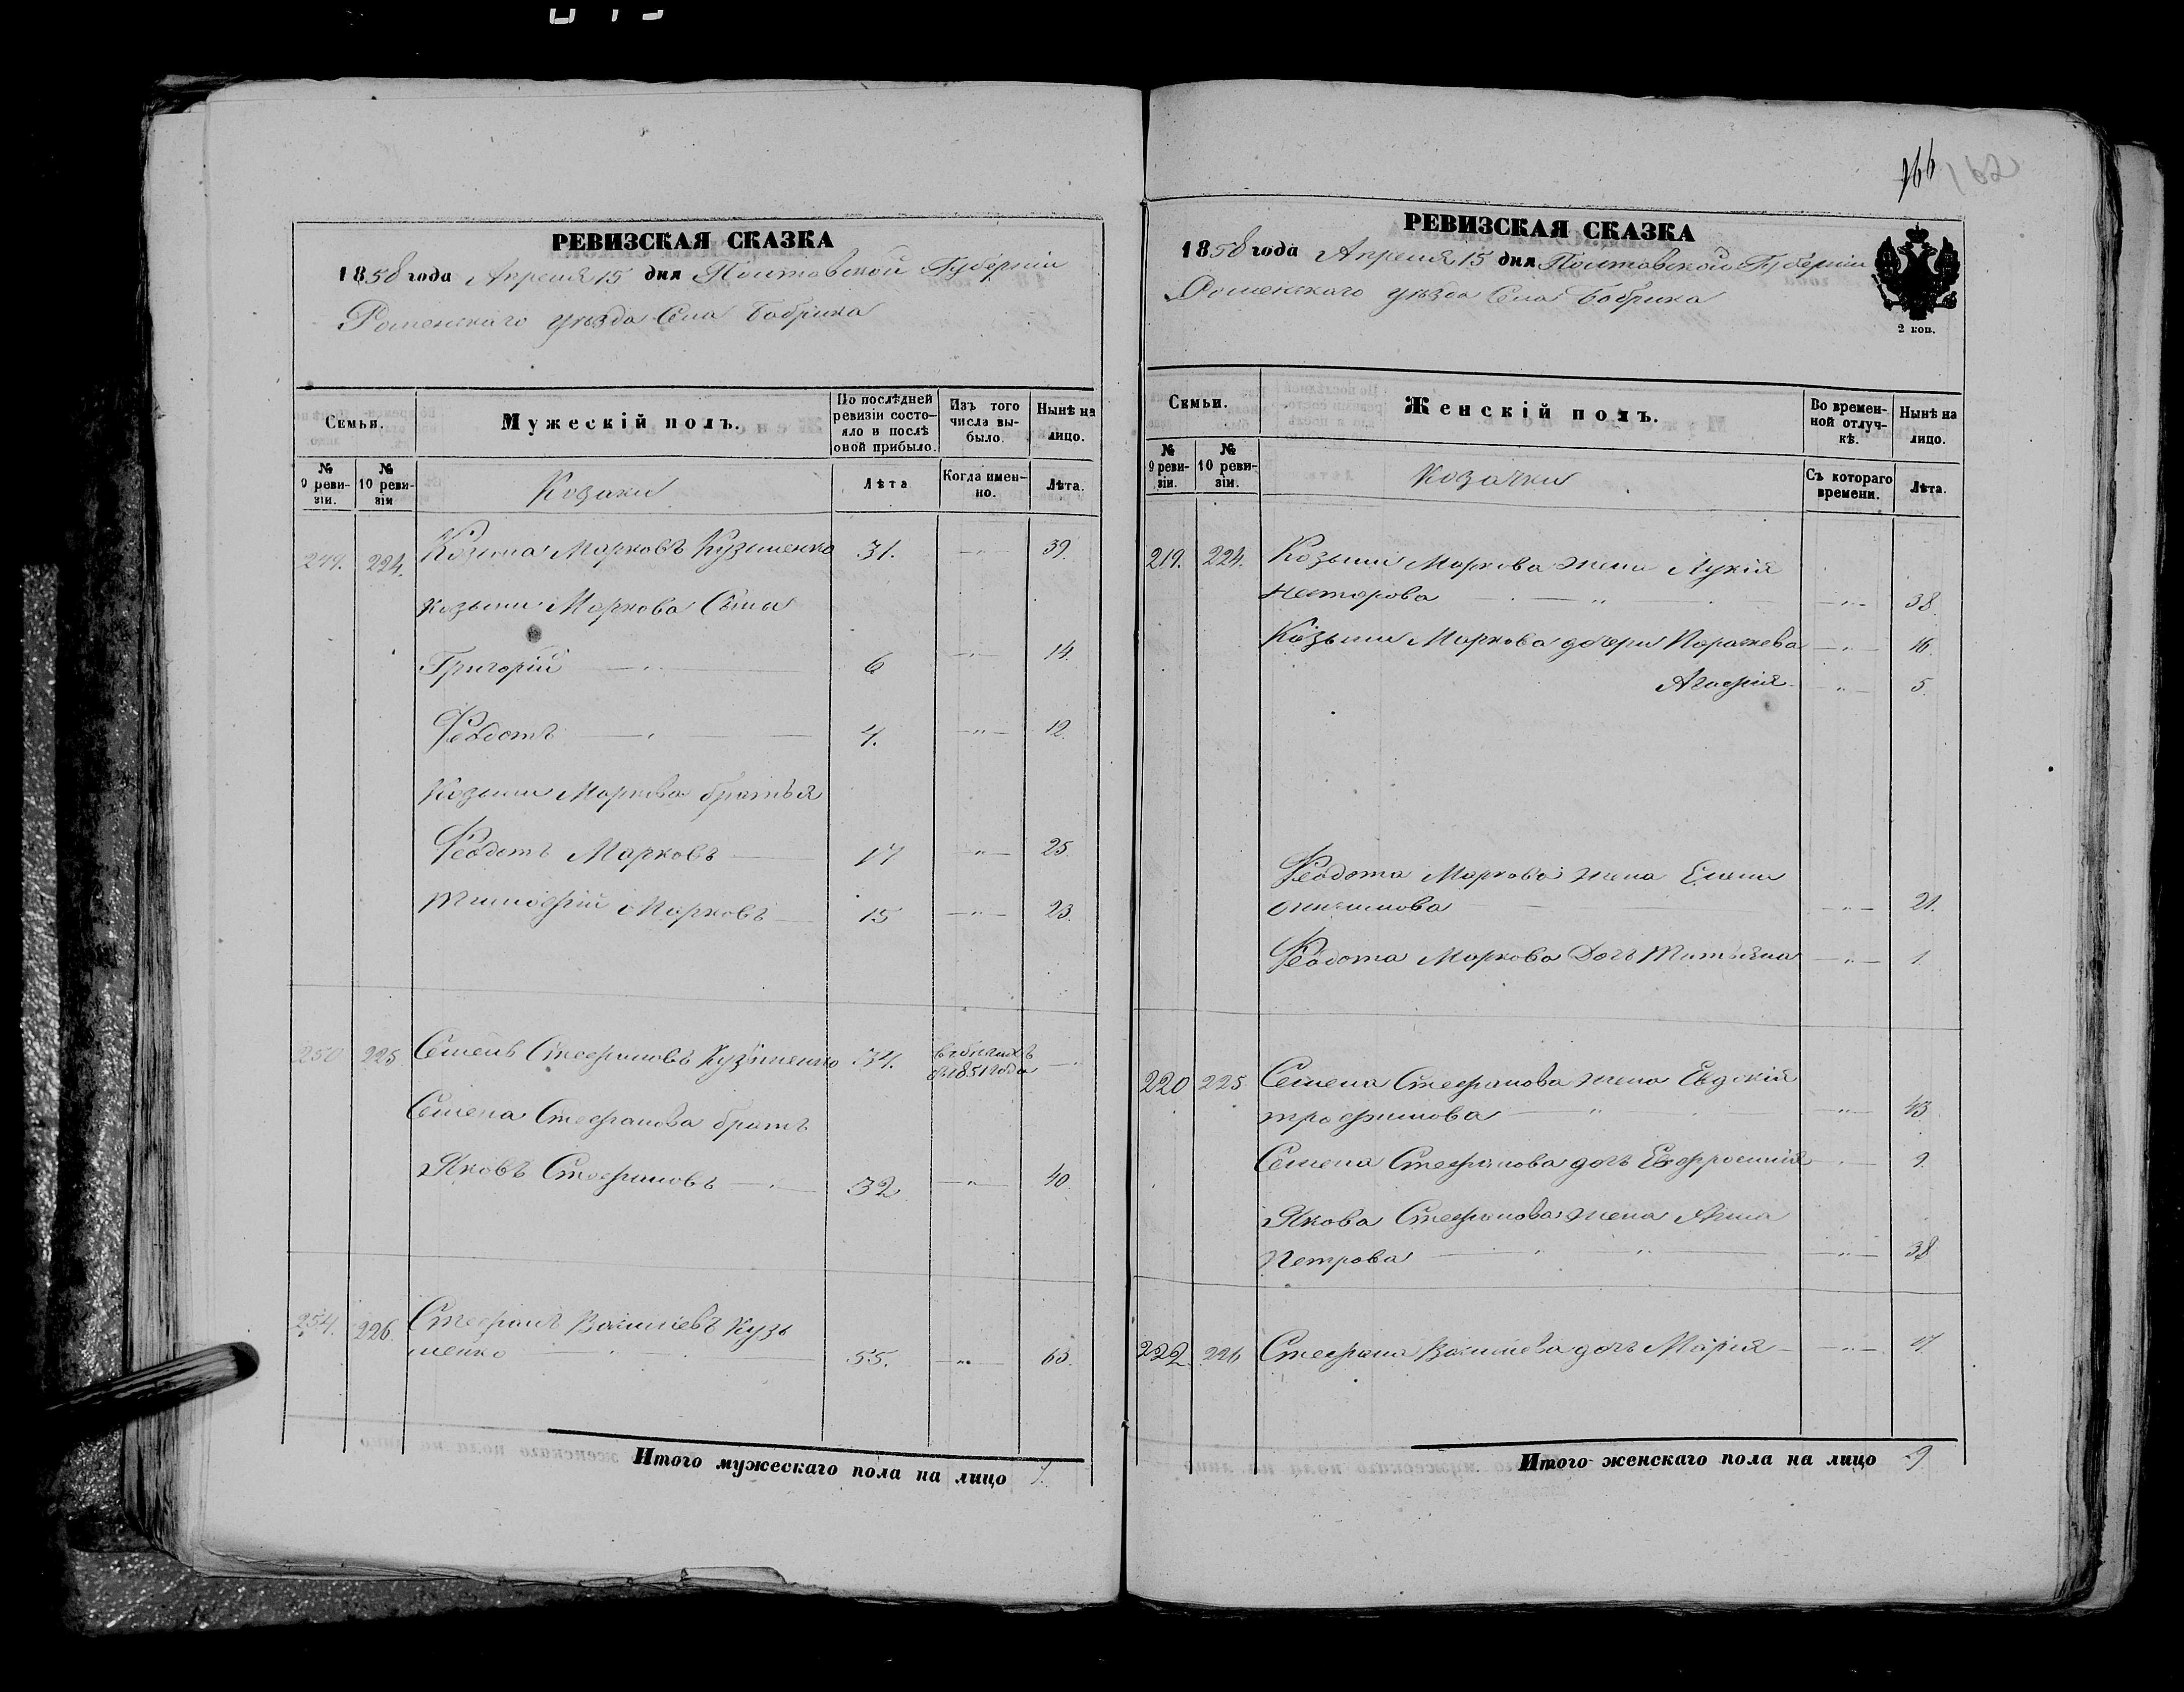 166
РЕВИЗСКАЯ СКАЗКА
1858 года Апреля 15 дня Полтавской Губерніи
Роменскаго уѣзда Села Бобрика
Семьи.
Мужескій полъ.
По послѣдней ревизіи состояло и послѣ оной прибыло.
Изъ того числа выбыло.
Нынѣ на лицо.
№ 9 ревизіи.
№ 10 ревизіи
Козаки
Лѣта
Когда именно.
Лѣта.
224. Козьма Марковъ Кузьменко 31. — " — 39.
Козьмы Маркова Сыны
Григорій — " — 6 — " — 14.
Федотъ — " — 4. — " — 12.
Козьмы Маркова братья
Федотъ Марковъ — 17 — " — 25.
Тимофій Марковъ — 15 — " — 23.
250 225 Семенъ Стефановъ Кузьменко 34. 1851 года — " —
Семена Стефанова братъ
Яковъ Стефановъ — " — 32 — " — 40.
226. Стефанъ Кузь
менко — " — 55. — " — 63.
Итого мужескаго пола на лицо 7.
РЕВИЗСКАЯ СКАЗКА
1858 года Апреля 15 дня Полтавской Губерніи
Роменскаго уѣзда Села Бобрика
2 коп.
Семьи.
Женскій полъ.
Во временной отлучкѣ.
Нынѣ на лицо.
№ 9 ревизіи.
№ 10 ревизіи.
Козачки
Съ котораго времени.
Лѣта.
219. 224. Козьмы Маркова жена Лукія
Несторова — " — — " — 38.
Козьмы Маркова дочери Параскева — " — 16.
Агафія — " — 5.
Федота Маркова жена Елена
— " — 21.
Федота Маркова Дочь Татьяна — " — 1.
220 225 Семена Стефанова жена Евдокія
трофимова — " — — " — 43.
Семена Стефанова дочь Евфросинія — " — 9.
Якова Стефанова жена Анна
Петрова — " — " — — " — 38
222. 226 Стефана дочь Марія — — " — 17.
Итого женскаго пола на лицо 9